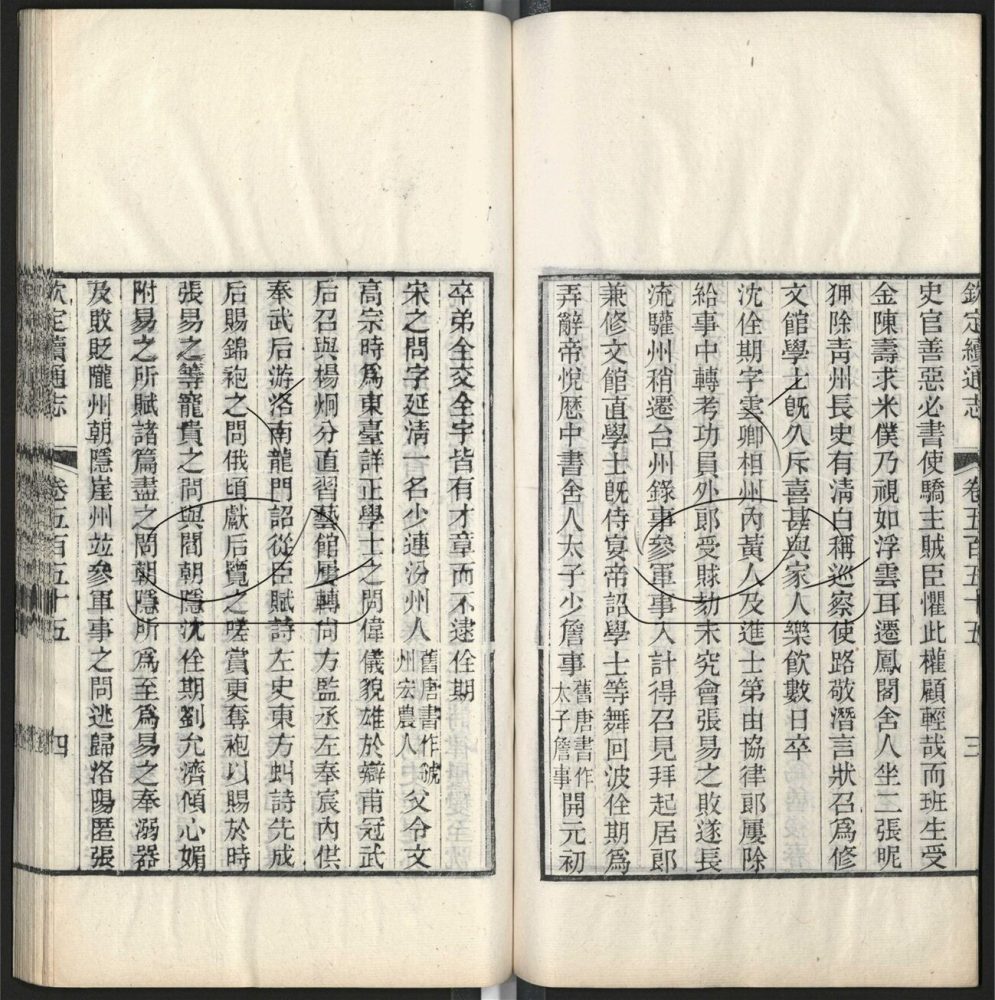 欽定續通志 卷五百五十五 三
史官善惡必書使驕主賊臣懼此權顧輕哉而班生受
金陳壽求米僕乃視如浮雲耳遷鳳閣舍人坐二張昵
狎除青州長史有清白稱巡察使路敬潛言狀召爲修
文館學士旣久斥喜甚與家人樂飮數日卒
沈佺期字雲卿相州內黃人及進士第由協律郎屢除
給事中轉考功員外郎受賕劾未究會張易之敗遂長
流驩州稍遷台州錄事參軍事入計得召見拜起居郎
兼修文館直學士旣侍宴帝詔學士等舞回波佺期爲
弄辭帝悅歷中書舍人太子少詹事舊唐書作太子詹事開元初
卒弟全交全宇皆有才章而不逮佺期
宋之問字延清一名少連汾州人舊唐書作虢州宏農人父令文
高宗時爲東臺詳正學士之問偉儀貌雄於辯甫冠武
后召與楊炯分直習藝館屢轉尙方監丞左奉宸內供
奉武后游洛南龍門詔從臣賦詩左史東方虬詩先成
后賜錦袍之問俄頃獻后覽之嗟賞更奪袍以賜於時
張易之等寵貴之問與閻朝隱沈佺期劉允濟傾心媚
附易之所賦諸篇盡之問朝隱所爲至爲易之奉溺器
及敗貶隴州朝隱崖州竝參軍事之問逃歸洛陽匿張
欽定續通志 卷五百五十五 四